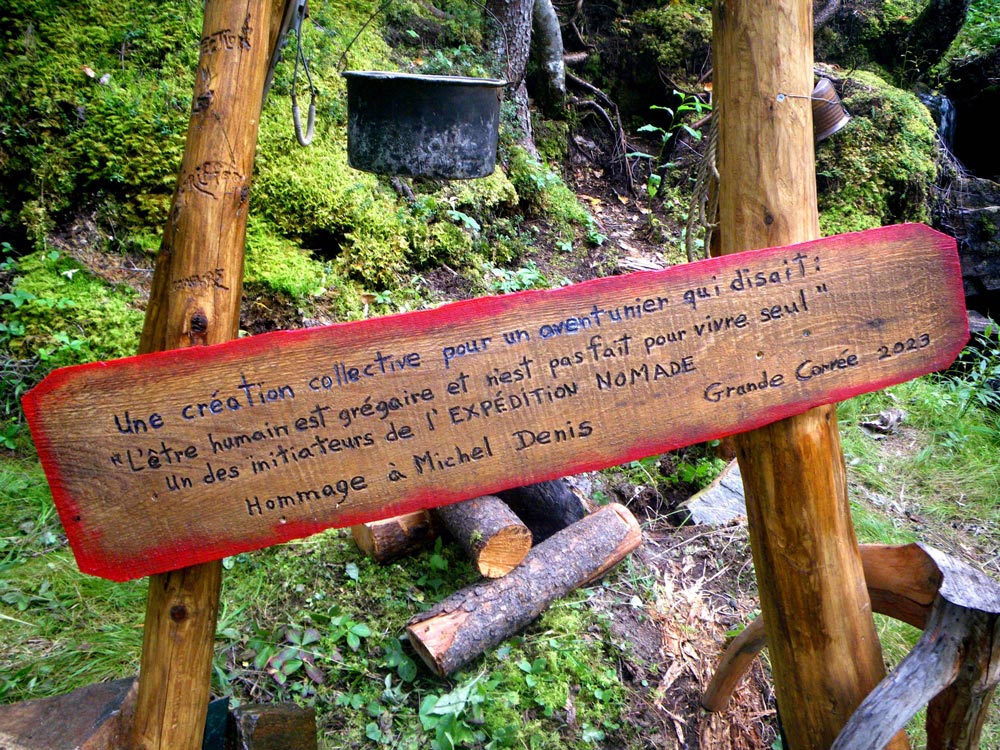 Une création collective pour un aventunier qui disait:
"L'être humain est grégaire et n'est pas fait pour vivre seul"
Un des initiateurs de l'EXPÉDITION NOMADE
Hommage à Michel Denis
Grande Corvée 2023